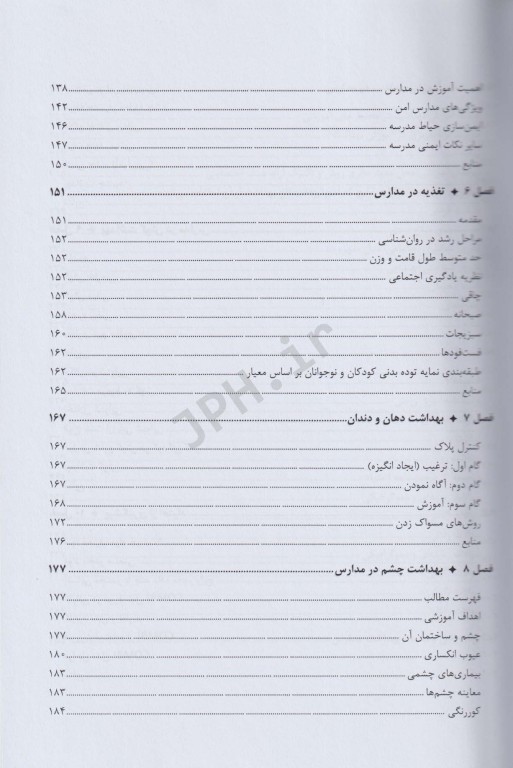 اهمیت آموزش در مدارس ۱۳۸
ویژگی‌های مدارس امن ۱۴۲
ایمن‌سازی حیاط مدرسه ۱۴۶
سایر نکات ایمنی مدرسه ۱۴۷
منابع ۱۵۰
فصل ۶ ✦ تغذیه در مدارس ۱۵۱
مقدمه ۱۵۱
مراحل رشد در روان‌شناسی ۱۵۲
حد متوسط طول قامت و وزن ۱۵۲
نظریه یادگیری اجتماعی ۱۵۲
چاقی ۱۵۳
صبحانه ۱۵۸
سبزیجات ۱۶۰
فست‌فودها ۱۶۲
طبقه‌بندی نمایه توده بدنی کودکان و نوجوانان بر اساس معیار ۱۶۲
منابع ۱۶۵
فصل ۷ ✦ بهداشت دهان و دندان ۱۶۷
کنترل پلاک ۱۶۷
گام اول: ترغیب (ایجاد انگیزه) ۱۶۷
گام دوم: آگاه نمودن ۱۶۷
گام سوم: آموزش ۱۶۸
روش‌های مسواک زدن ۱۷۲
منابع ۱۷۶
فصل ۸ ✦ بهداشت چشم در مدارس ۱۷۷
فهرست مطالب ۱۷۷
اهداف آموزشی ۱۷۷
چشم و ساختمان آن ۱۷۷
عیوب انکساری ۱۸۰
بیماری‌های چشمی ۱۸۳
معاینه چشم‌ها ۱۸۳
کوررنگی ۱۸۴
JPH.ir